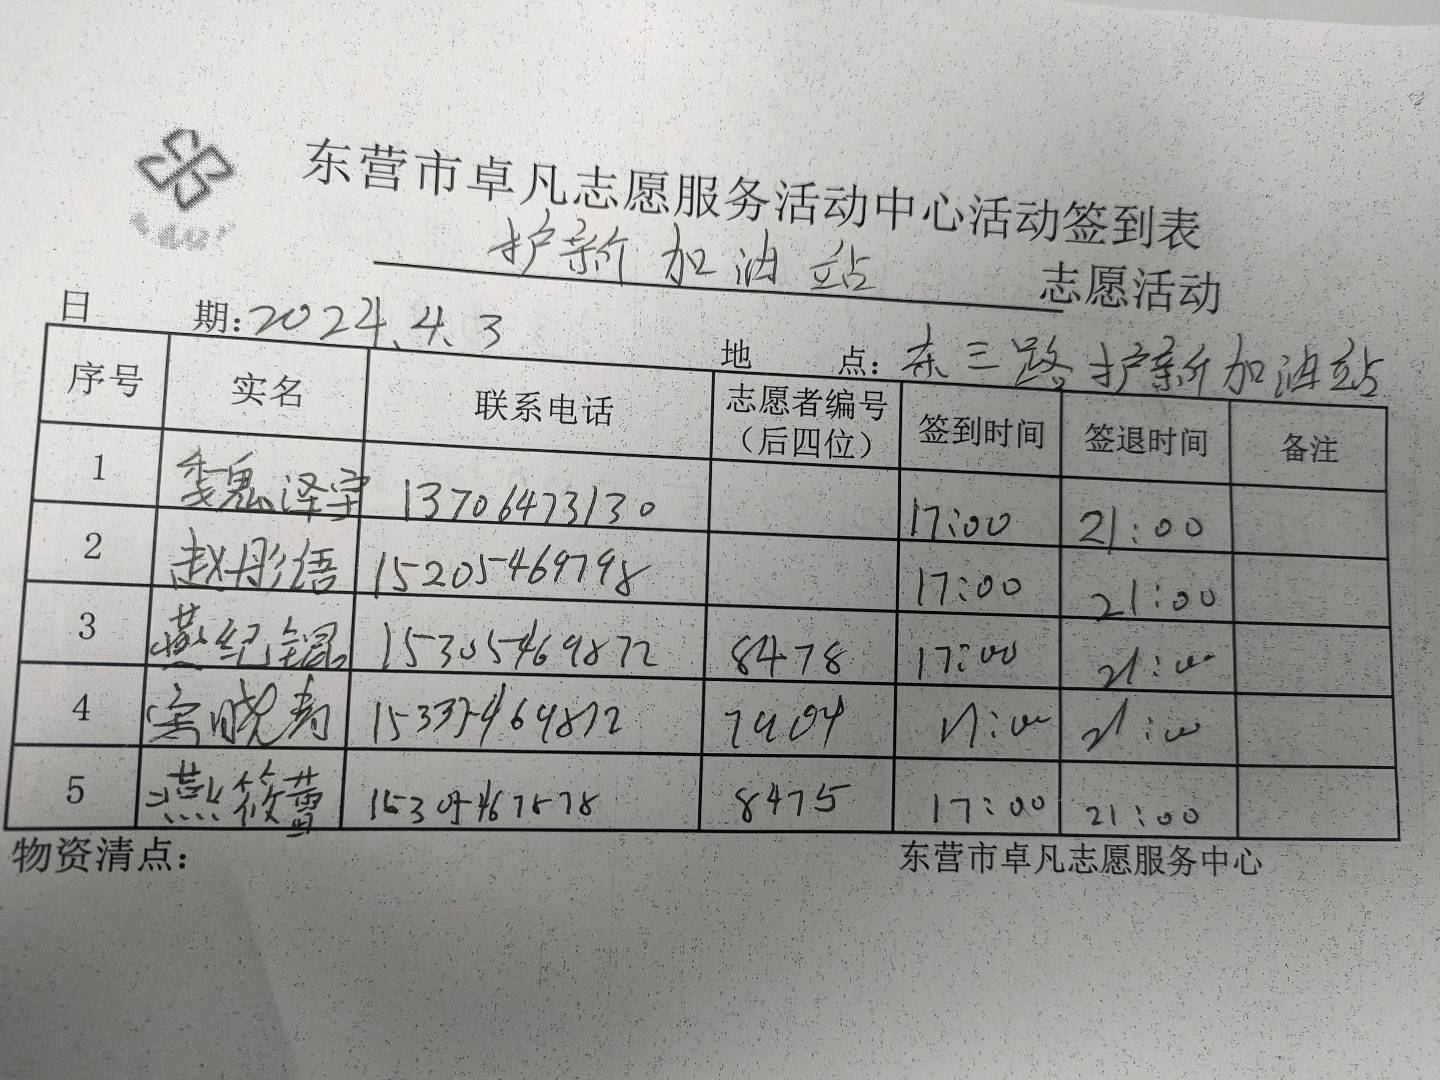 东营市卓凡志愿服务活动中心活动签到表
护新加油站 志愿活动
日 期：2024.4.3 地 点：东三路护新加油站
序号 实名 联系电话 志愿者编号（后四位） 签到时间 签退时间 备注
1 魏泽宇 13706473130 17:00 21:00
2 赵彤语 15205469798 17:00 21:00
3 燕纪锟 15305469872 8478 17:00 21:00
4 宋晓寿 15335469872 7404 17:00 21:00
5 燕筱蕾 8475 17:00 21:00
物资清点： 东营市卓凡志愿服务中心